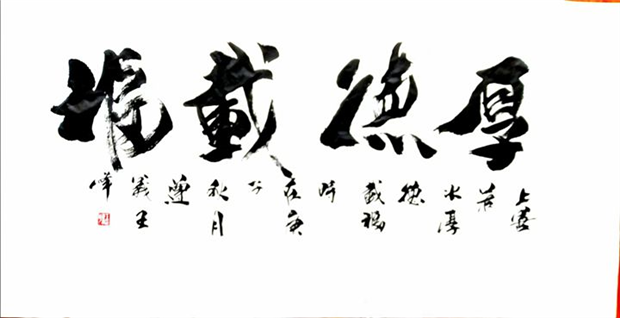 厚德載福
上善若水厚德載福時在庚子秋月遵義王峰